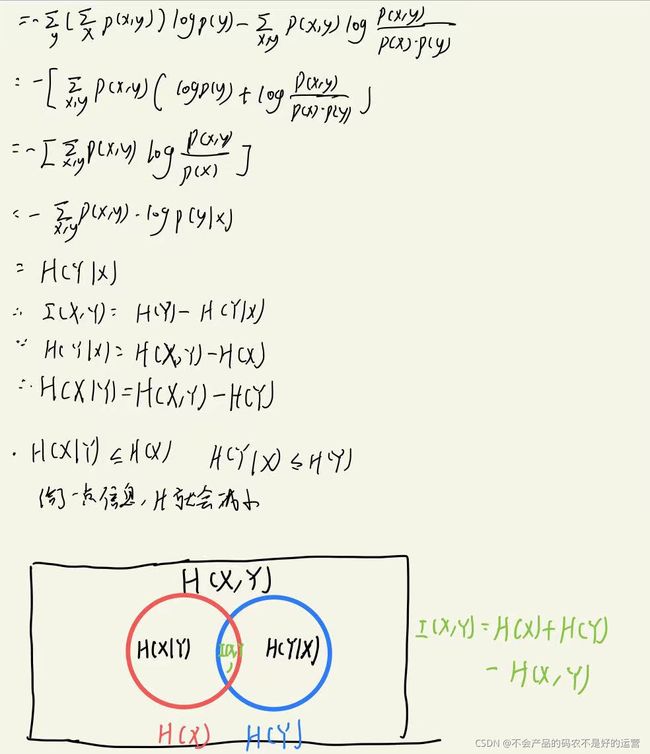 = - Σ_y (Σ_x p(x,y)) log p(y) - Σ_{x,y} p(x,y) log p(x,y)/(p(x)·p(y))
= -[Σ_{x,y} p(x,y) (log p(y) + log p(x,y)/(p(x)·p(y))]
= -[Σ_{x,y} p(x,y) log p(x,y)/p(x)]
= - Σ_{x,y} p(x,y) · log p(y|x)
= H(Y|X)
∴ I(X,Y) = H(Y) - H(Y|X)
∵ H(Y|X) = H(X,Y) - H(X)
∴ H(X|Y) = H(X,Y) - H(Y)
· H(X|Y) ≤ H(X) H(Y|X) ≤ H(Y)
给了一点信息，H就会减小
H(X,Y)
H(X|Y) H(Y|X)
I(X,Y) = H(X) + H(Y)
- H(X,Y)
H(X) H(Y)
CSDN @不会产品的码农不是好的运营